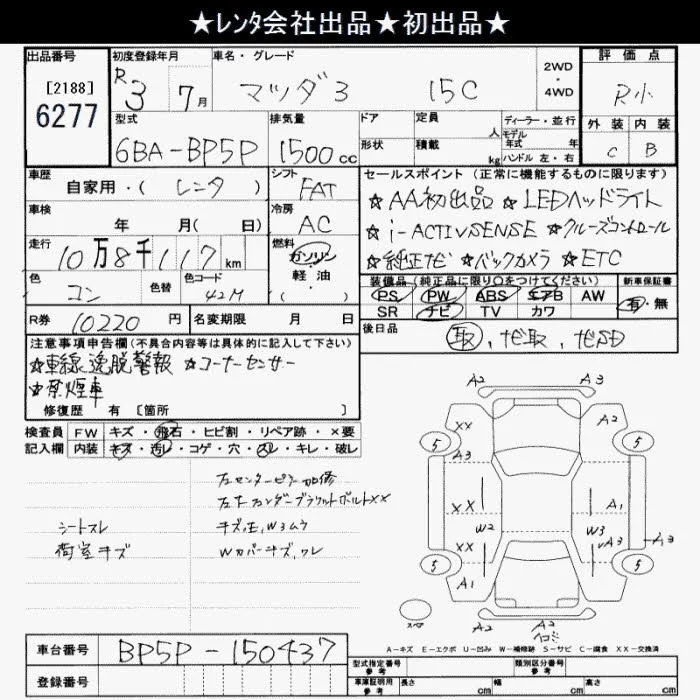 ★レンタ会社出品★初出品★
出品番号 初度登録年月 車名・グレード 2WD・4WD 評価点
[2188]
6277
R3 7月 マツダ3 15C R小
型式 排気量 ドア 定員 人 ディーラー・並行 外装 内装
6BA-BP5P 1500cc 形状 積載 kg モデル年式 年 C B
ハンドル 左・右
車歴 シフト セールスポイント(正常に機能するものに限ります)
自家用・(レンタ) FAT ★AA初出品 ★LEDヘッドライト
車検 年 月(日) 冷房 AC ★i-ACTIVSENSE ★クルーズコントロール
走行 10万8千117km 燃料 ガソリン 軽・油・( ) ★純正ナビ ★バックカメラ ★ETC
色 コン 色替 色コード 42M 装備品(純正品に限り○をつけてください) 新車保証書
PS PW ABS エアB AW 有・無
SR ナビ TV カワ
R券 10220円 名変期限 月 日 後日品 取,ナビ取,ナビSD
注意事項申告欄(不具合内容等は具体的に記入して下さい)
★車線逸脱警報 ★コーナーセンサー
★禁煙車
修復歴 有 [箇所 ]
検査員 FW キズ・飛石・ヒビ割・リペア跡・×要
記入欄 内装 キズ・汚レ・コゲ・穴・スレ・キレ・破レ
左センターピラー加修
ボルトXX
シートスレ
荷室キズ
A2 A3
XX A2
5 5
A3
XX A1
W2 W3
XX A3 A3
5 5
A1
A2 A2
A-キズ E-エクボ U-凹み W-補修跡 S-サビ C-腐食 XX-交換済
車台番号 BP5P-150437
登録番号
型式指定番号 参考 類別区分番号 参考
車庫証明用 参考 長さ cm 幅 cm 高さ cm